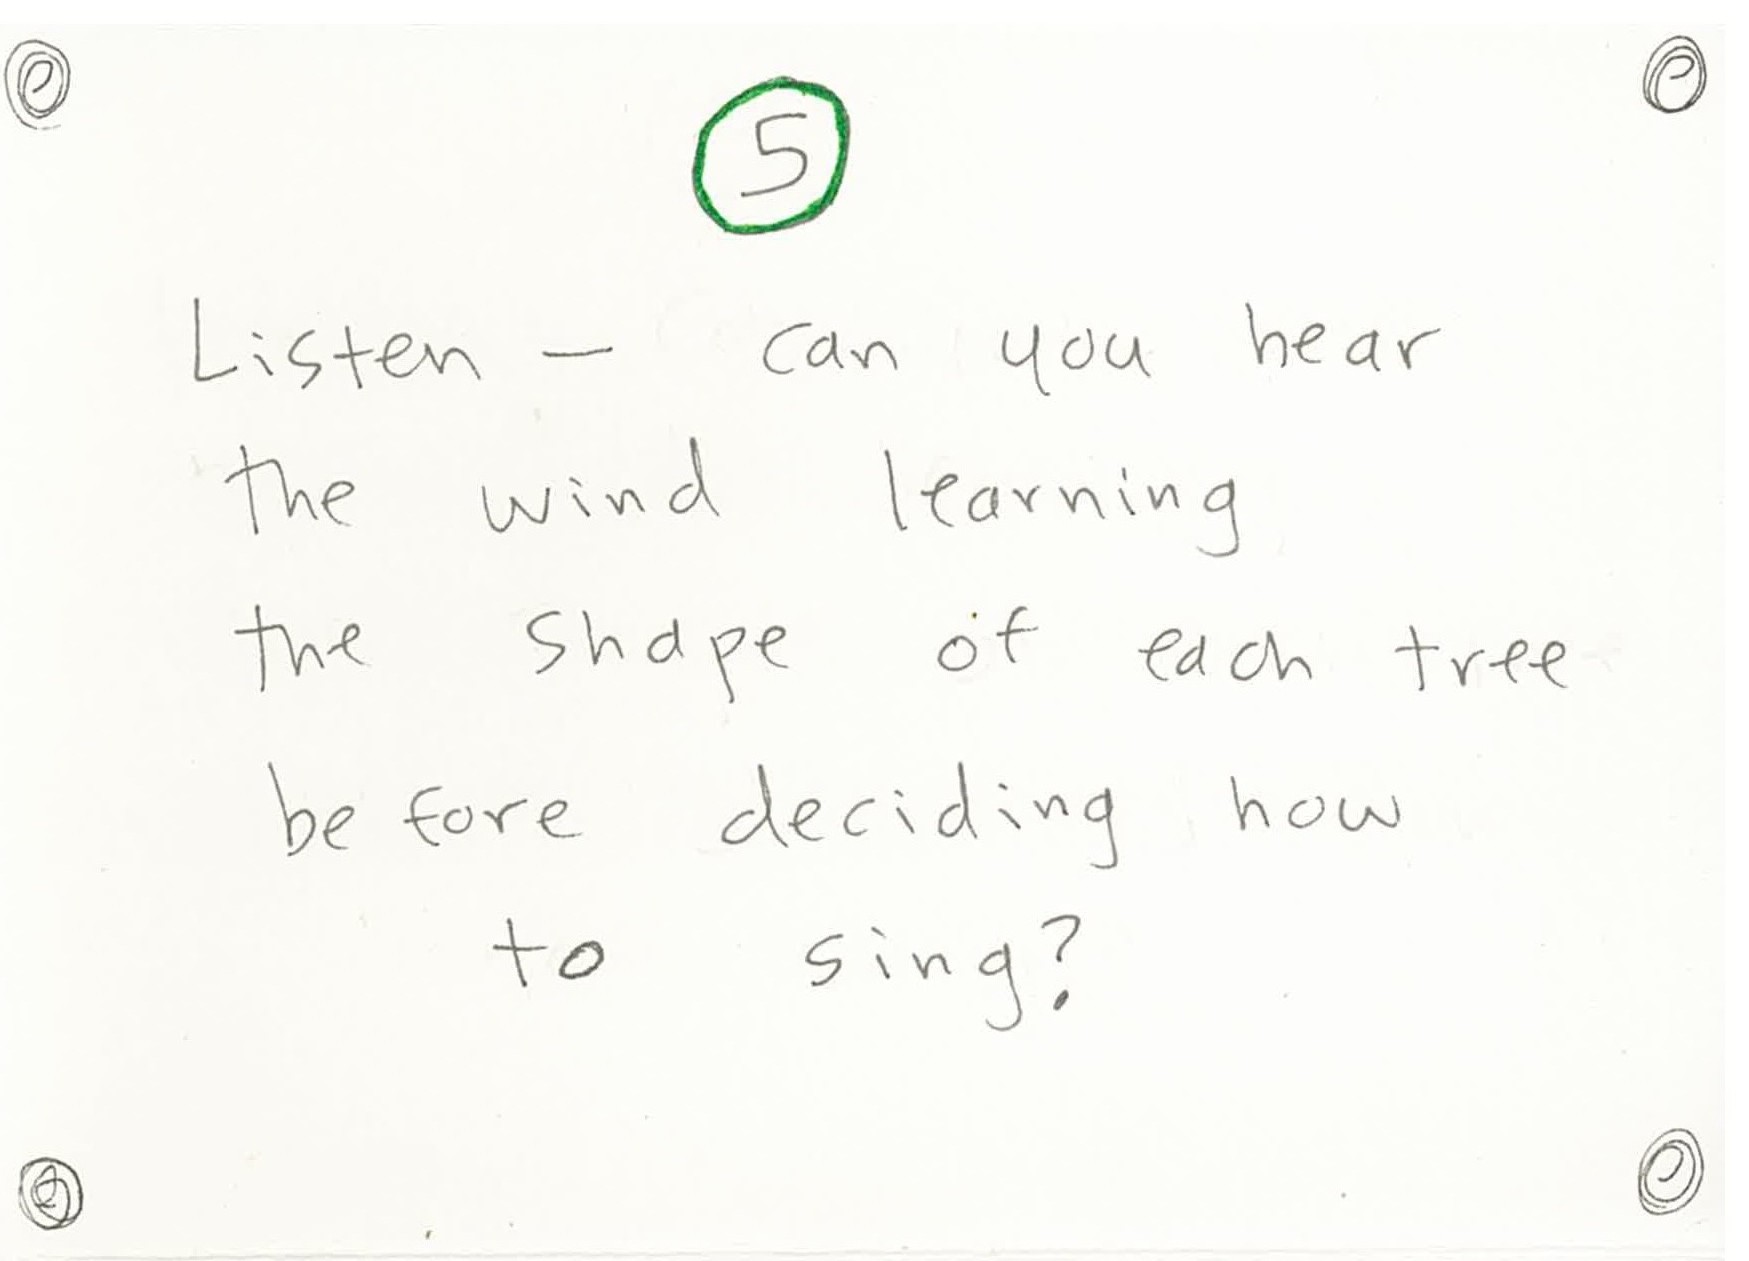 5
Listen – can you hear
the wind learning
the shape of each tree
before deciding how
to sing?